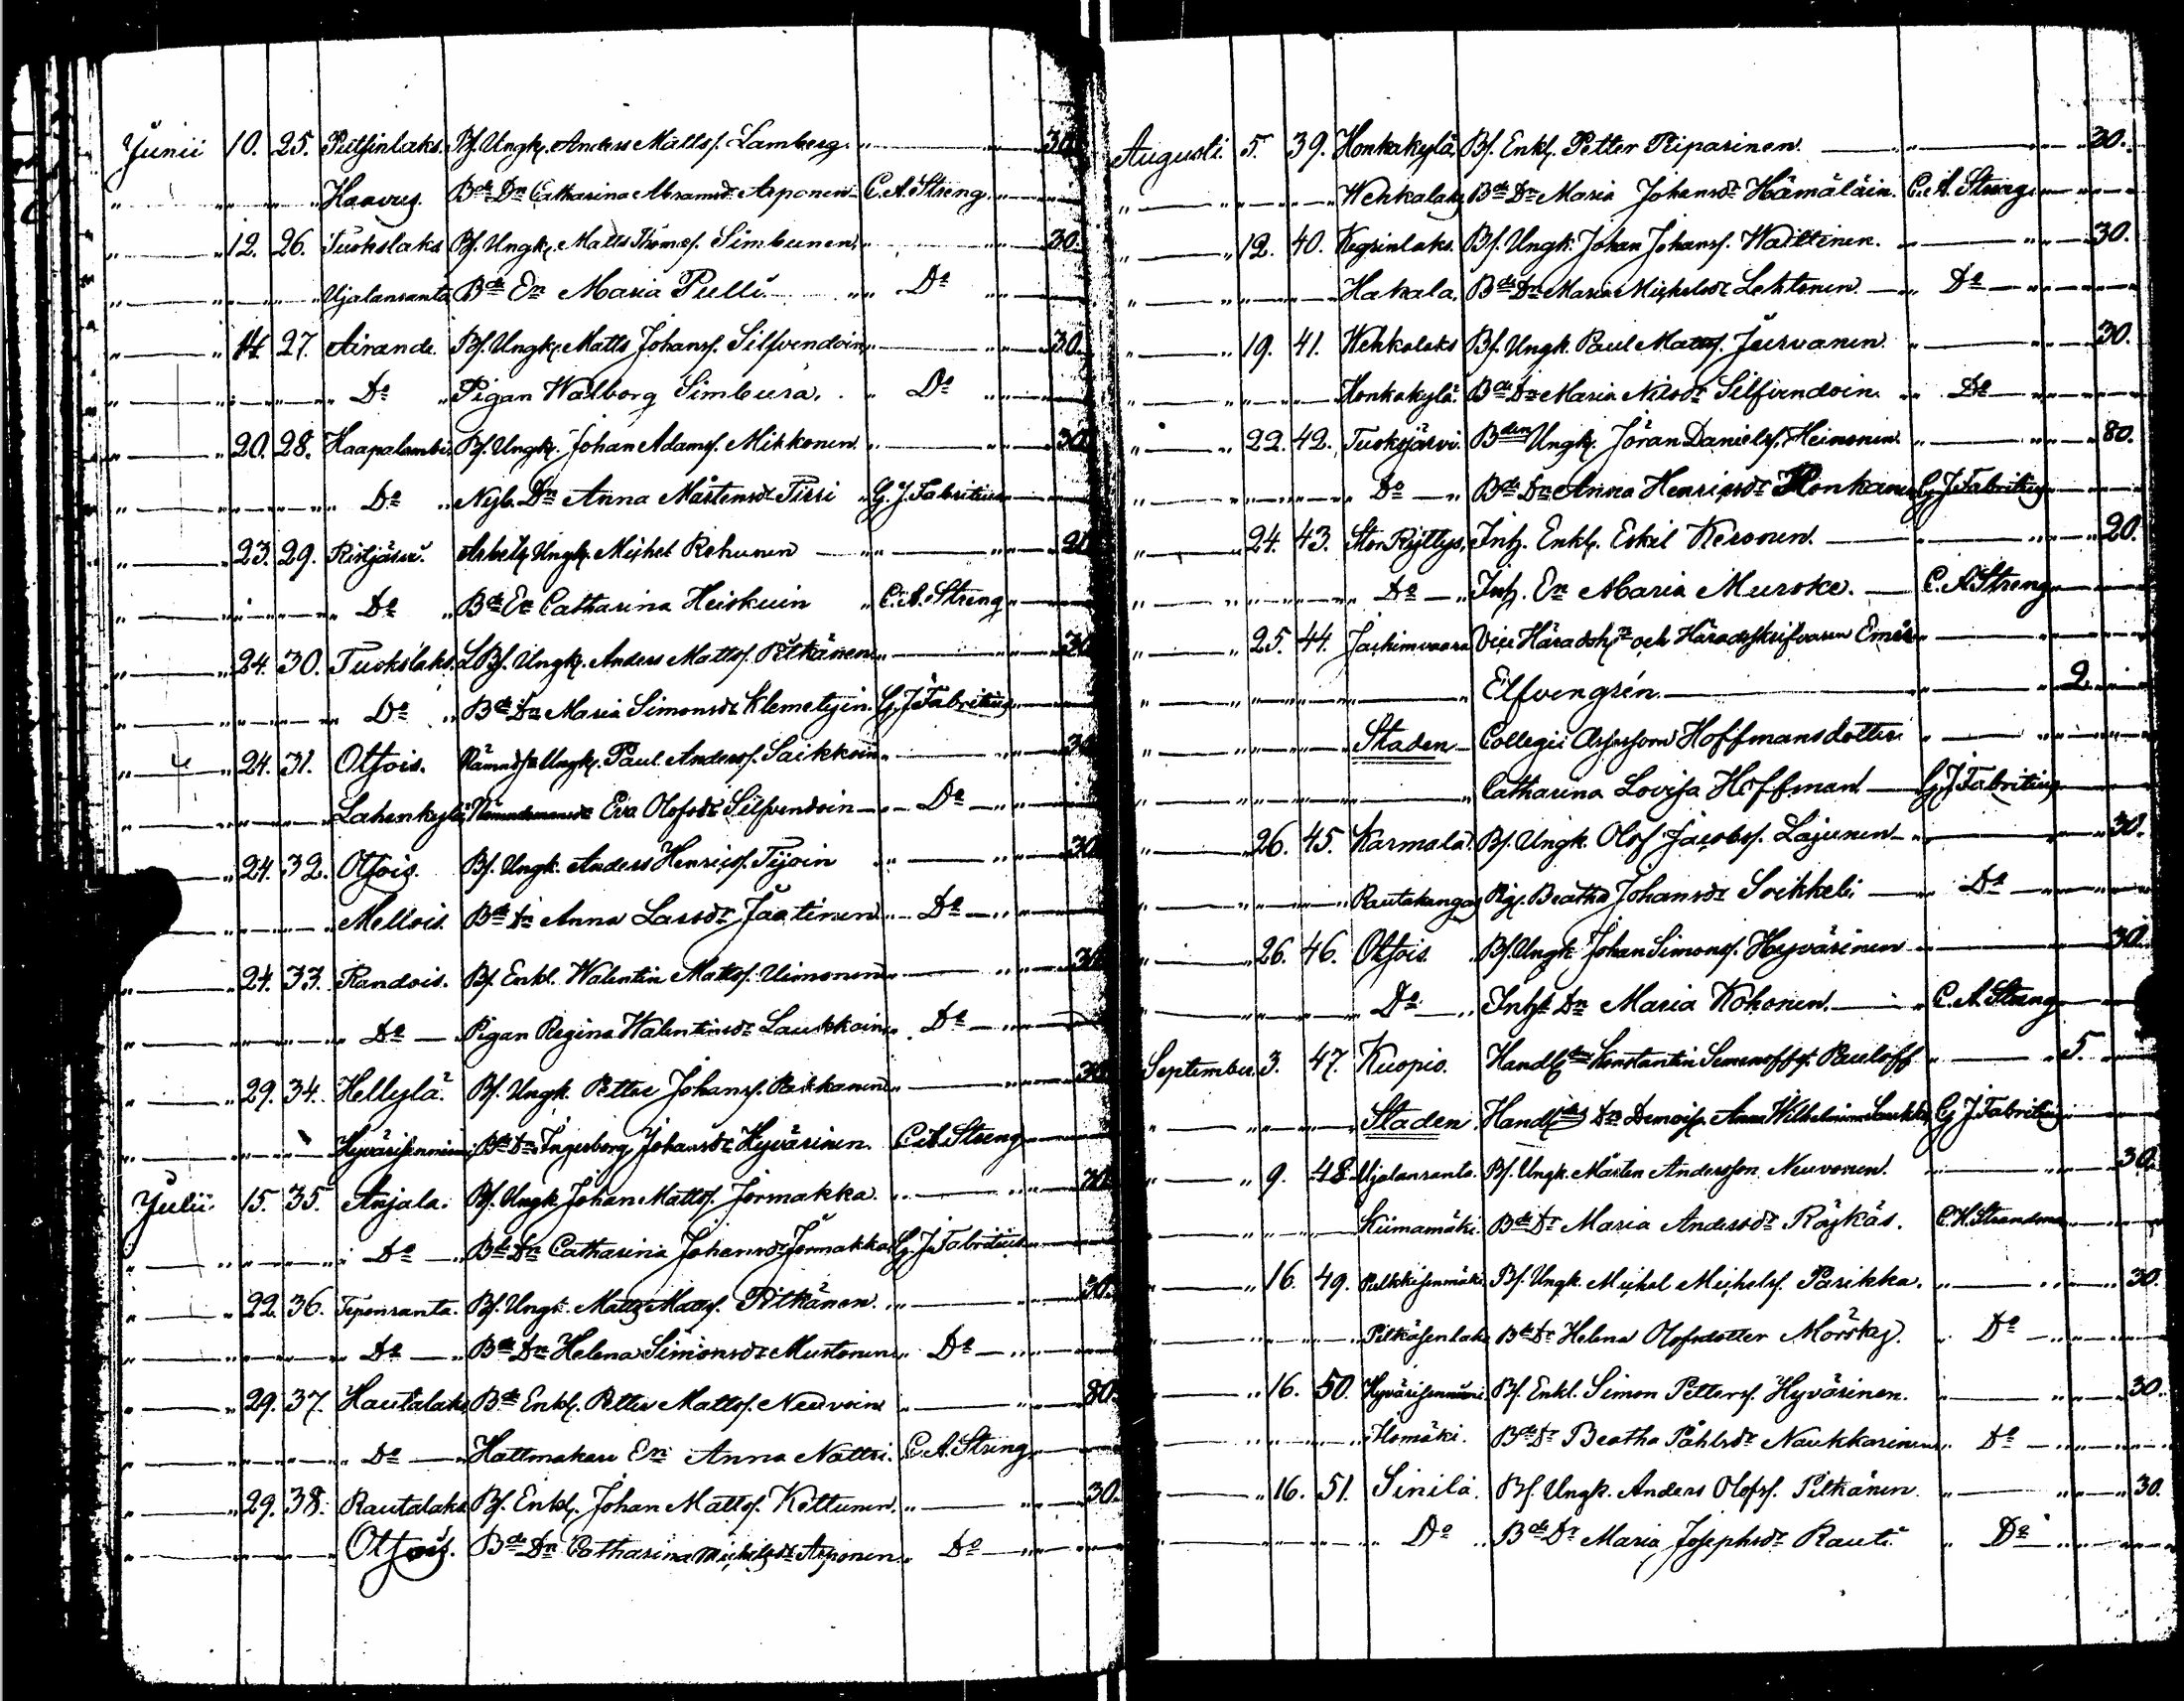 Junii 10. 25. Pitsinlaks. Bs. Ungk. Anders Matts. Lamberg. 30.
Haavus. Bde Dn Catharina Abramsdr Asponen C. A. Streng
12. 26. Tuokslaks Bs. Ungk. Matts Thomæs. Simbunen 30.
Ujalansanta Bde En Maria Pulli Do
14. 27. Airande. Bs. Ungk. Matts Johans. Silfvendoin 30.
Do Pigan Walborg Simbura. Do
20. 28. Haapalambi Bs. Ungk. Johan Adams. Mikkonen 30.
Do Nyb. Dn Anna Mårtensdr Tirri G. J. Fabritius
23. 29. Ristjärvi. Arbetsk Ungk. Michel Rehunen
Do Bde En Catharina Heiskuin C. A. Streng
24. 30. Tuokslaks. LBs. Ungk. Anders Matts. Pitkänen 30
Do Bde Dn Maria Simonsdr Klemetzin G. J. Fabritius
24. 31. Otsois. Nämnds. Ungk. Paul Anders. Saikkoin 30
Lahenkylä Nämndemansdr Eva Olofsdr Silfvendoin Do
24. 32. Otsois. Bs. Ungk. Anders Henrics. Tijoin 30
Mellois. Bde Dn Anna Larsdr Jaatinen Do
24. 33. Randois. Bs. Enkl. Walentin Matts. Uimonen 30
Do Pigan Regina Walentinsdr Laukkain Do
29. 34. Hellylä. Bs. Ungk. Petter Johans. Pakkanen 30
Hyvärisenniemi Bde Dn Ingerborg Johansdr Hyvärinen. C. A. Streng
Julii 15. 35. Anjala. Bs. Ungk. Johan Matts. Jormakka 30
Do Bde Dn Catharina Johansdr Jormakka G. J. Fabritius
22. 36. Teponranta. Bs. Ungk. Matts Matts. Pitkänen. 30.
Do Bde Dn Helena Simonsdr Mustonen Do
29. 37. Hautalaks Bde Enkl. Petter Matts. Neuvoin 80.
Do Hattmakare En Anna Nättri. C. A. Streng
29. 38. Rautalaks Bs. Enkl. Johan Matts. Kettunen. 30.
Otsois. Bde Dn Catharina Michelsdr Asponen Do
Augusti. 5. 39. Honkakylä, Bs. Enkl. Petter Piiparinen. 30.
Wehkalaks Bde Dn Maria Johansdr Hämäläin. C. A. Streng
12. 40. Kegrinlaks. Bs. Ungk. Johan Johans. Waittinen. 30.
Hakala. Bde Dn Maria Michelsdr Lehtonen Do
19. 41. Wehkalaks Bs. Ungk. Paul Matts. Jurvanen 30.
Honkakylä. Bde Dn Maria Nilsdr Silfvendoin Do
22. 42. Tuoksjärvi. Bden Ungk. Jöran Daniels. Heinonen. 80.
Do Bde Dn Anna Henricsdr Honkanen G. J. Fabritius
24. 43. Ston Ryttys, Inh. Enkl. Eskil Kesonen. 20.
Do Inh. En Maria Murske. C. A. Streng
25. 44. Jachimvaara Vice Häradsh. och Häradsskrifvaren
Elfvengrén. 2
Staden Collegii Assessors Hoffmansdotter
Catharina Lovisa Hoffman G. J. Fabritius
26. 45. Karmala. Bs. Ungk. Olof Jacobs. Lajunen 30.
Rautakangas Pig. Beatha Johansdr Soikkeli Do
26. 46. Otsois. Bs. Ungk. Johan Simons. Hyvärinen 30.
Do Inhs. Dn Maria Kohonen. C. A. Streng
September. 3. 47. Kuopio. Handl. Konstantin Semenoffs. Pauloff 5.
Staden Handl. Dn Demois. Anna Wilhelmina G. J. Fabritius
9. 48. Ujalanranta. Bs. Ungk. Mårten Andersson Neuvonen. 30.
Kiimamäki. Bde Dr Maria Andersdr Räjkäs.
16. 49. Pelkkisenmäki Bs. Ungk. Michel Michels. Parikka. 30.
Pitkäsenlaks Bde Dr Helena Olofsdotter Mörsky. Do
16. 50. Hyvärisenniemi Bs. Enkl. Simon Petters. Hyvärinen. 30.
Ilomäki. Bde Dr Beatha Påhlsdr Naukkarinen Do
16. 51. Sinilä. Bs. Ungk. Anders Olofs. Pitkänen 30.
Do Bde Dr Maria Josephsdr Rauti Do